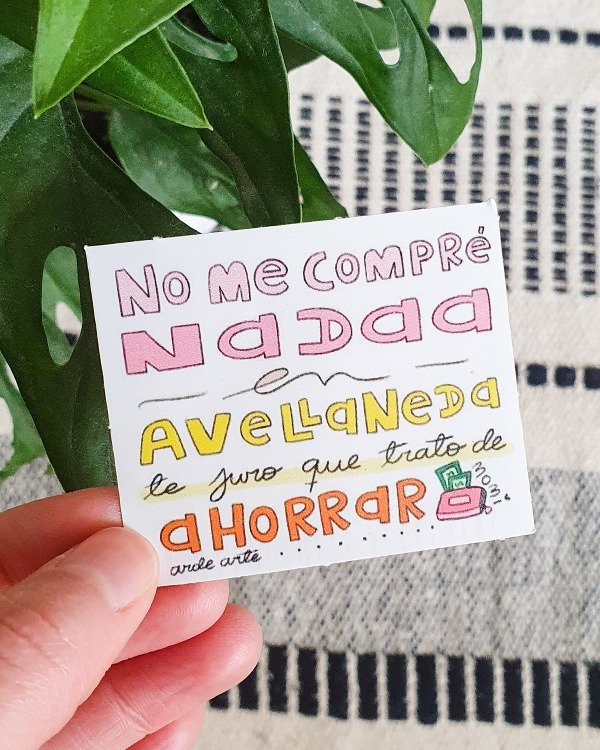 No me compré
Nadaa
en
Avellaneda
te juro que trato de
ahorrar
arde arte